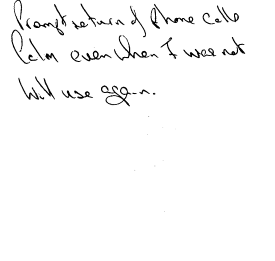 Prompt return of phone calls
Calm even when I was not
Will use again.